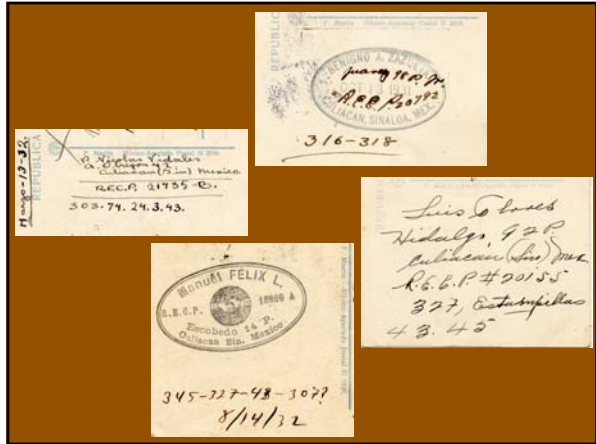 REPUBLICA
BENIGNO A. ZAZUETA
OCT 13 1931
Juarez 98 P. Nr.
R.E.C.P. 20792
CULIACAN, SINALOA, MEX.
316-318
Marzo-13-32.
REPUBLICA
F. Martin - México-Apartado Postal
P. Nicolas Vidales
A. Obregon 42
Culiacan (Sin) Mexico
R.E.C.P. 21735-B.
303.74. 24.3.43.
Luis Flores
Hidalgo, 92 P.
Culiacan (Sin) Mex.
R.E.C.P. # 20155
327, Estampillas
43.45
Manuel FÉLIX L.
R.E.C.P. 18609 A
Escobedo 14 P.
Culiacan Sin. Mexico
345-327-48-307?
8/14/32